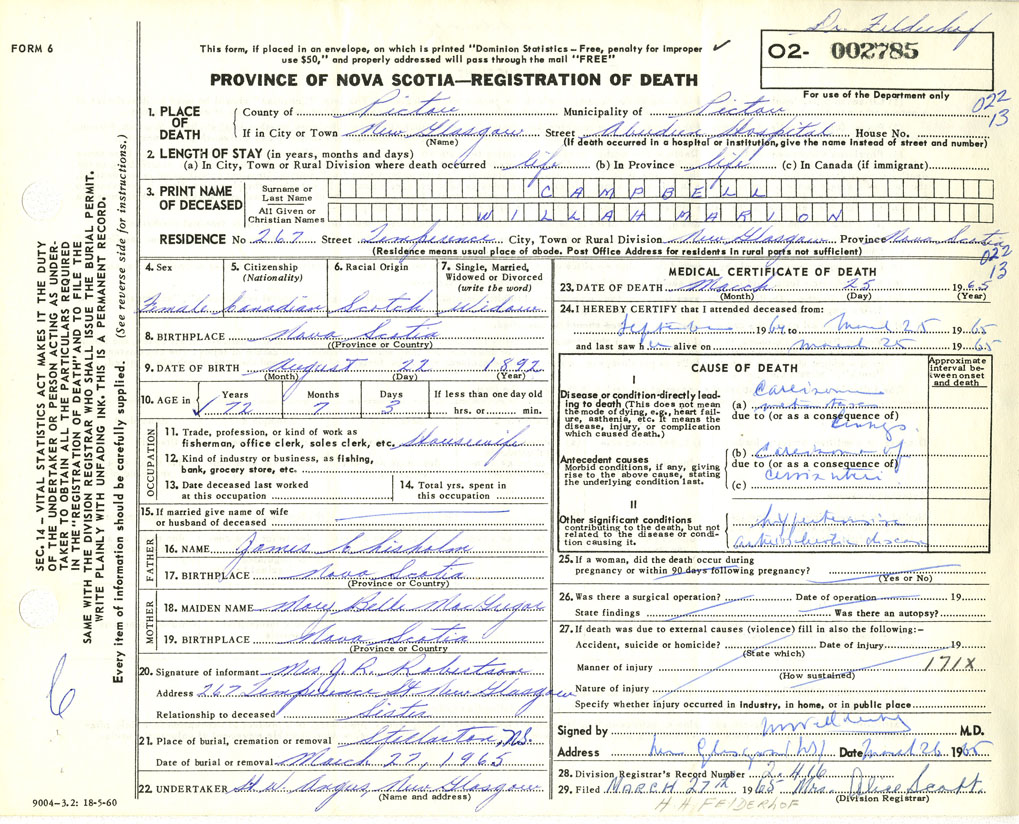 Dr. Felderhof
FORM 6
This form, if placed in an envelope, on which is printed "Dominion Statistics – Free, penalty for improper
use $50," and properly addressed will pass through the mail "FREE"
✓
O2- 002785
For use of the Department only
PROVINCE OF NOVA SCOTIA—REGISTRATION OF DEATH
022
13
1. PLACE OF DEATH
County of Pictou Municipality of Pictou
If in City or Town New Glasgow Street Aberdeen Hospital House No.
(Name) (If death occurred in a hospital or institution, give the name instead of street and number)
2. LENGTH OF STAY (in years, months and days)
(a) In City, Town or Rural Division where death occurred life (b) In Province life (c) In Canada (if immigrant)
3. PRINT NAME OF DECEASED
Surname or Last Name CAMPBELL
All Given or Christian Names WILLAH MARION
RESIDENCE No 267 Street Temperence City, Town or Rural Division New Glasgow Province Nova Scotia
(Residence means usual place of abode. Post Office Address for residents in rural parts not sufficient)
022
13
4. Sex Female
5. Citizenship (Nationality) Canadian
6. Racial Origin Scotch
7. Single, Married, Widowed or Divorced (write the word) Widow
8. BIRTHPLACE Nova Scotia
((Province or Country)
9. DATE OF BIRTH August 22 1892
(Month) (Day) (Year)
10. AGE in Years Months Days If less than one day old
✓ 72 7 3 hrs. or min.
OCCUPATION
11. Trade, profession, or kind of work as
fisherman, office clerk, sales clerk, etc. Housewife
12. Kind of industry or business, as fishing,
bank, grocery store, etc.
13. Date deceased last worked
at this occupation
14. Total yrs. spent in
this occupation
15. If married give name of wife
or husband of deceased
FATHER
16. NAME James Chisholm
17. BIRTHPLACE Nova Scotia
(Province or Country)
MOTHER
18. MAIDEN NAME Mary Belle MacGregor
19. BIRTHPLACE Nova Scotia
(Province or Country)
20. Signature of informant Mrs. J. R. Robertson
Address 267 Temperence St New Glasgow
Relationship to deceased Sister
21. Place of burial, cremation or removal Stellarton, N.S.
Date of burial or removal March 27, 1965
22. UNDERTAKER H. W. Angus, New Glasgow
(Name and address)
MEDICAL CERTIFICATE OF DEATH
23. DATE OF DEATH March 25 1965
(Month) (Day) (Year)
24. I HEREBY CERTIFY that I attended deceased from:
September 1964 to March 25 1965
and last saw her alive on March 25 1965
CAUSE OF DEATH
Approximate interval between onset and death
I
Disease or condition directly leading to death (This does not mean the mode of dying, e.g., heart failure, asthenia, etc. It means the disease, injury, or complication which caused death.)
Carcinoma
(a)
due to (or as a consequence of)
lungs.
Antecedent causes
Morbid conditions, if any, giving rise to the above cause, stating the underlying condition last.
(b) Carcinoma of
due to (or as a consequence of)
(c) cervix uteri
II
Other significant conditions
contributing to the death, but not related to the disease or condition causing it.
hypertensive
arteriosclerotic disease
25. If a woman, did the death occur during
pregnancy or within 90 days following pregnancy?
(Yes or No)
26. Was there a surgical operation? Date of operation 19
State findings Was there an autopsy?
27. If death was due to external causes (violence) fill in also the following:–
Accident, suicide or homicide? Date of injury 19
(State which)
Manner of injury 171X
(How sustained)
Nature of injury
Specify whether injury occurred in industry, in home, or in public place
Signed by M.D.
Address New Glasgow (NS) Date March 26 1965
28. Division Registrar's Record Number 2416
29. Filed MARCH 27th 1965 Mrs. Alice Scott.
(Division Registrar)
H H FELDERHOF
SEC. 14 – VITAL STATISTICS ACT MAKES IT THE DUTY
OF THE UNDERTAKER OR PERSON ACTING AS UNDER-
TAKER TO OBTAIN ALL THE PARTICULARS REQUIRED
IN THE "REGISTRATION OF DEATH" AND TO FILE THE
SAME WITH THE DIVISION REGISTRAR WHO SHALL ISSUE THE BURIAL PERMIT.
WRITE PLAINLY WITH UNFADING INK. THIS IS A PERMANENT RECORD.
Every item of information should be carefully supplied. (See reverse side for instructions.)
6
9004–3.2: 18-5-60